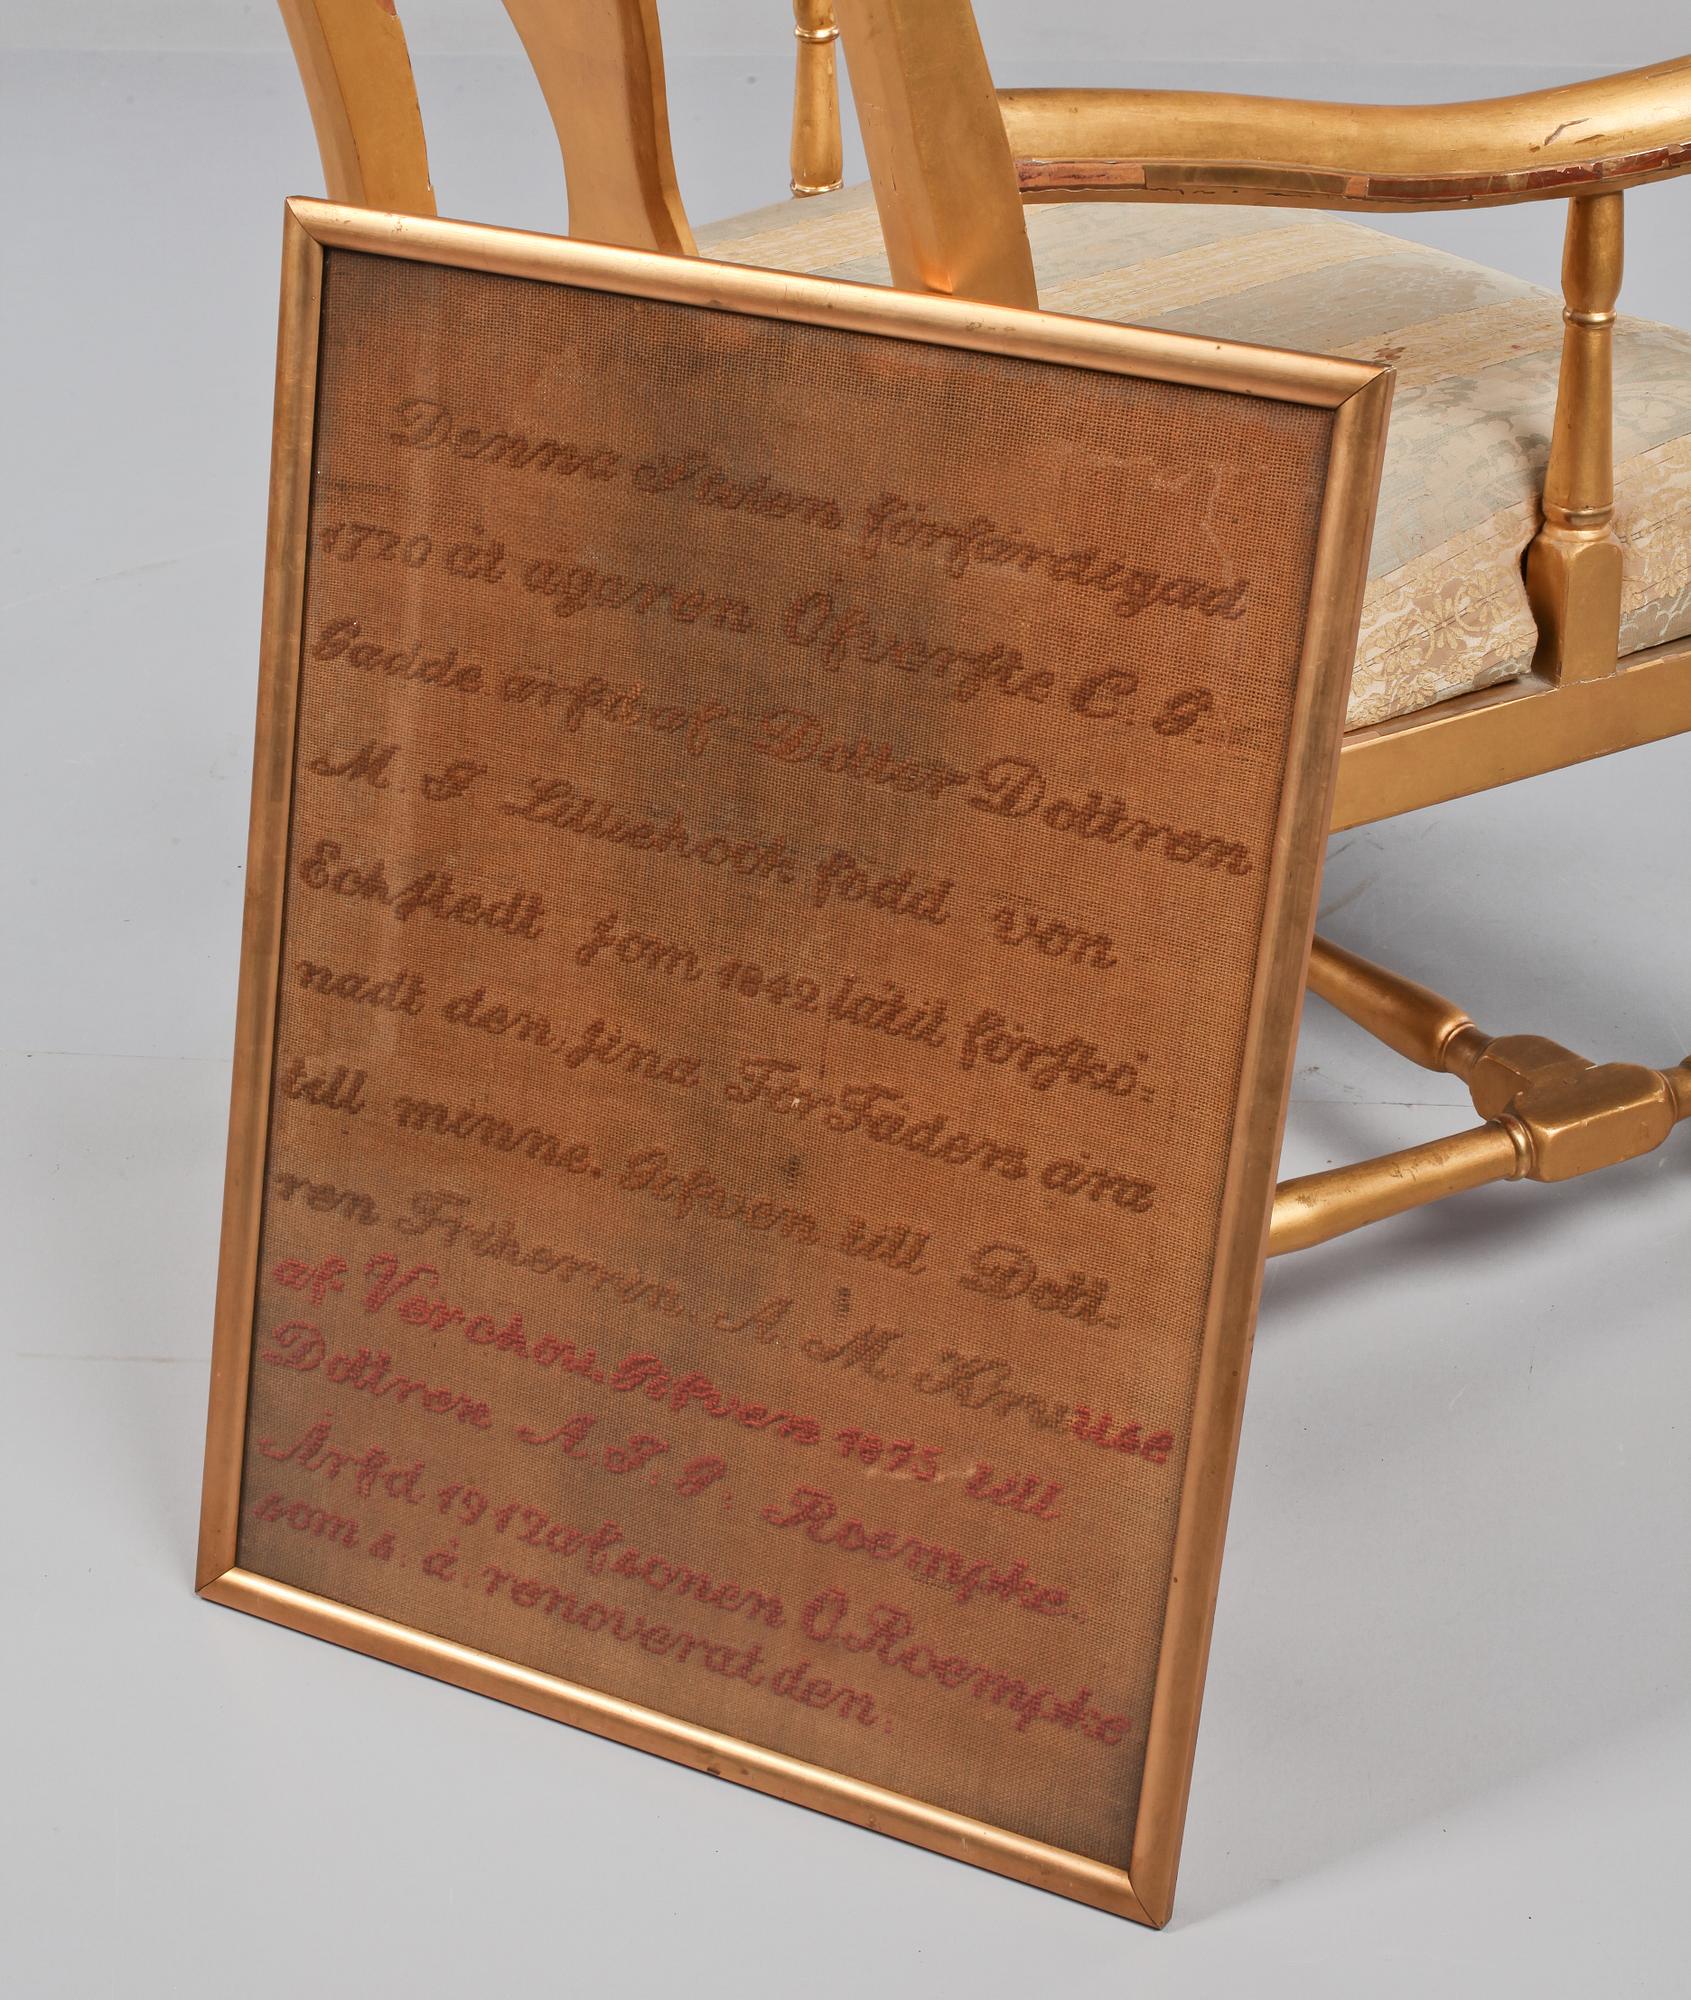 Denna Stolen förfärdigad
1720 åt ägaren Öfverste C. G.
Gadde ärfd af Dotter Dottren
M. G Lilliehöök född von
Echstedt som 1842 låtit förskö-
nadt den, sina FörFäders ära
till minne. Gifven till Dott-
ren Friherrin. A. M. Kruuse
af Verchou. Gifven 1875 till
Dottren A. S. G: Roempke.
Ärfd 1912 af sonen O. Roempke
som s. å. renoverat den: